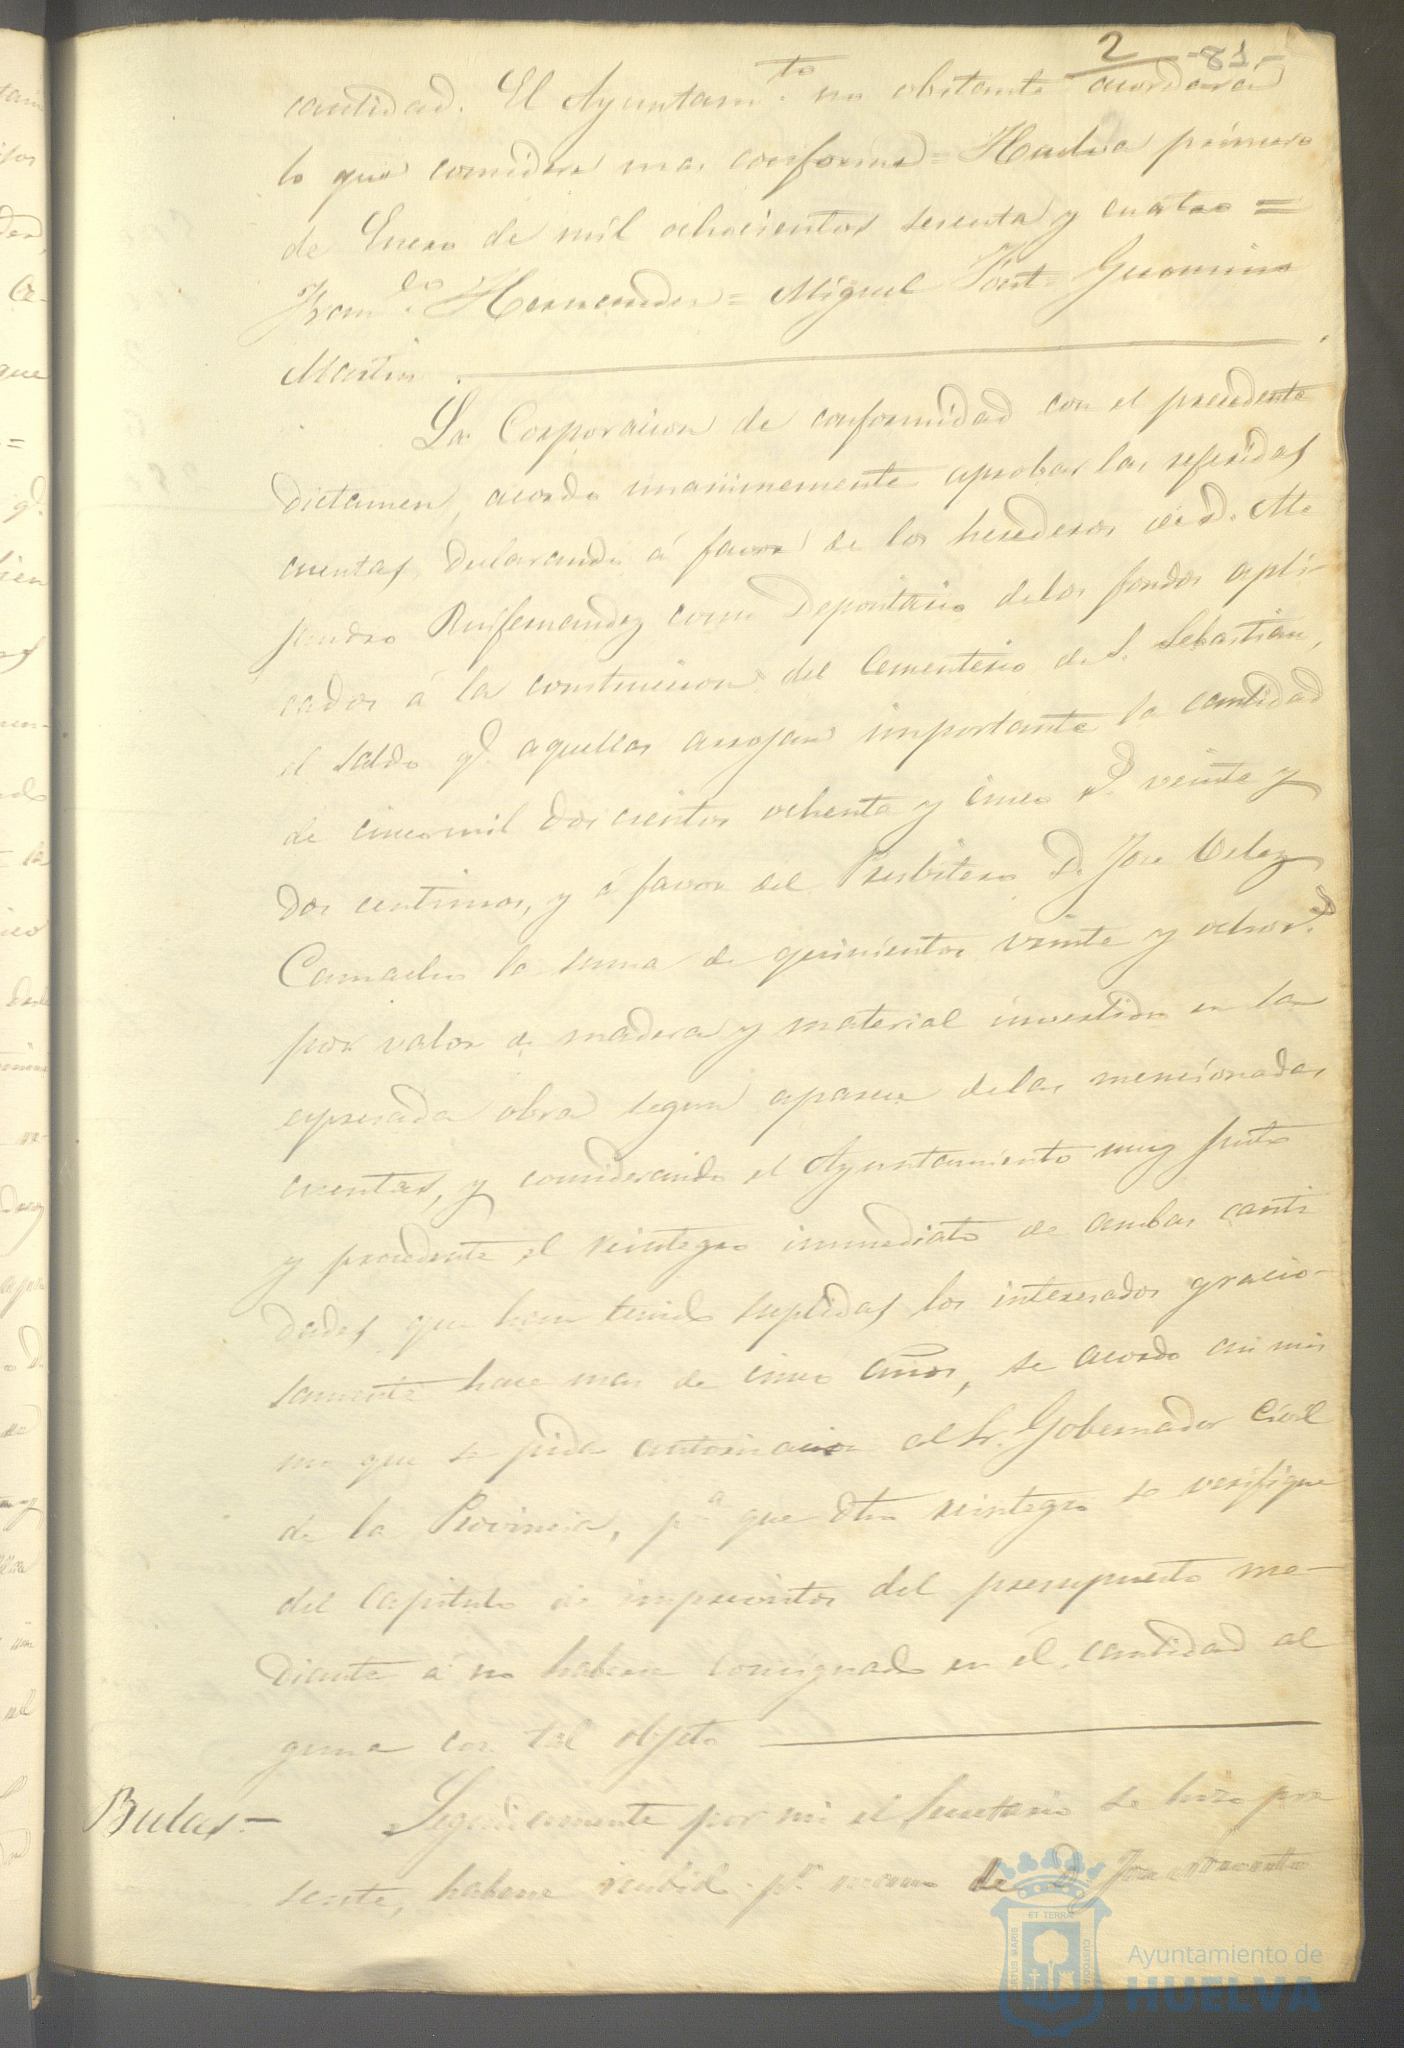 2 -81-
cantidad. El Ayuntam.to no obstante acordará
lo que considere mas conforme = Huelva primero
de Enero de mil ochocientos sesenta y cuatro =
Fran.co Hernandez = Miguel Fort = Geronimo
Martin
La Corporacion de conformidad con el precedente
dictamen, acordó unanimemente aprobar las referidas
cuentas, declarando á favor de los herederos de D. Ale
jandro Ruifernandez como Depositario delos fondos apli-
cados á la construccion del Cementerio de S. Sebastian,
el saldo q.e aquellas arrojan importante la cantidad
de cinco mil dos cientos ochenta y cinco r.s veinte y
dos centimos, y á favor del Presbitero D. Jose Velez
Camacho la suma de quinientos veinte y ocho r.s
por valor de madera y material invertido en la
espresada obra segun aparece delas mencionadas
cuentas, y considerando el Ayuntamiento muy justo
y procedente el reintegro inmediato de ambas canti
dades que han tenido suplidas los interesados gracio-
samente hace mas de cinco años, se acordó asi mis
mo que se pida autorizacion al Sr. Gobernador Civil
de la Provincia, p.a que dho reintegro se verifique
del Capitulo de imprevistos del presupuesto me-
diante á no haberse consignado en él cantidad al
guna con tal objeto
Bulas- Seguidamente por mi el Secretario se hizo pre
sente, haberse recibido p.r mano de D. Jose
ET TERRA
Ayuntamiento de
HUELVA